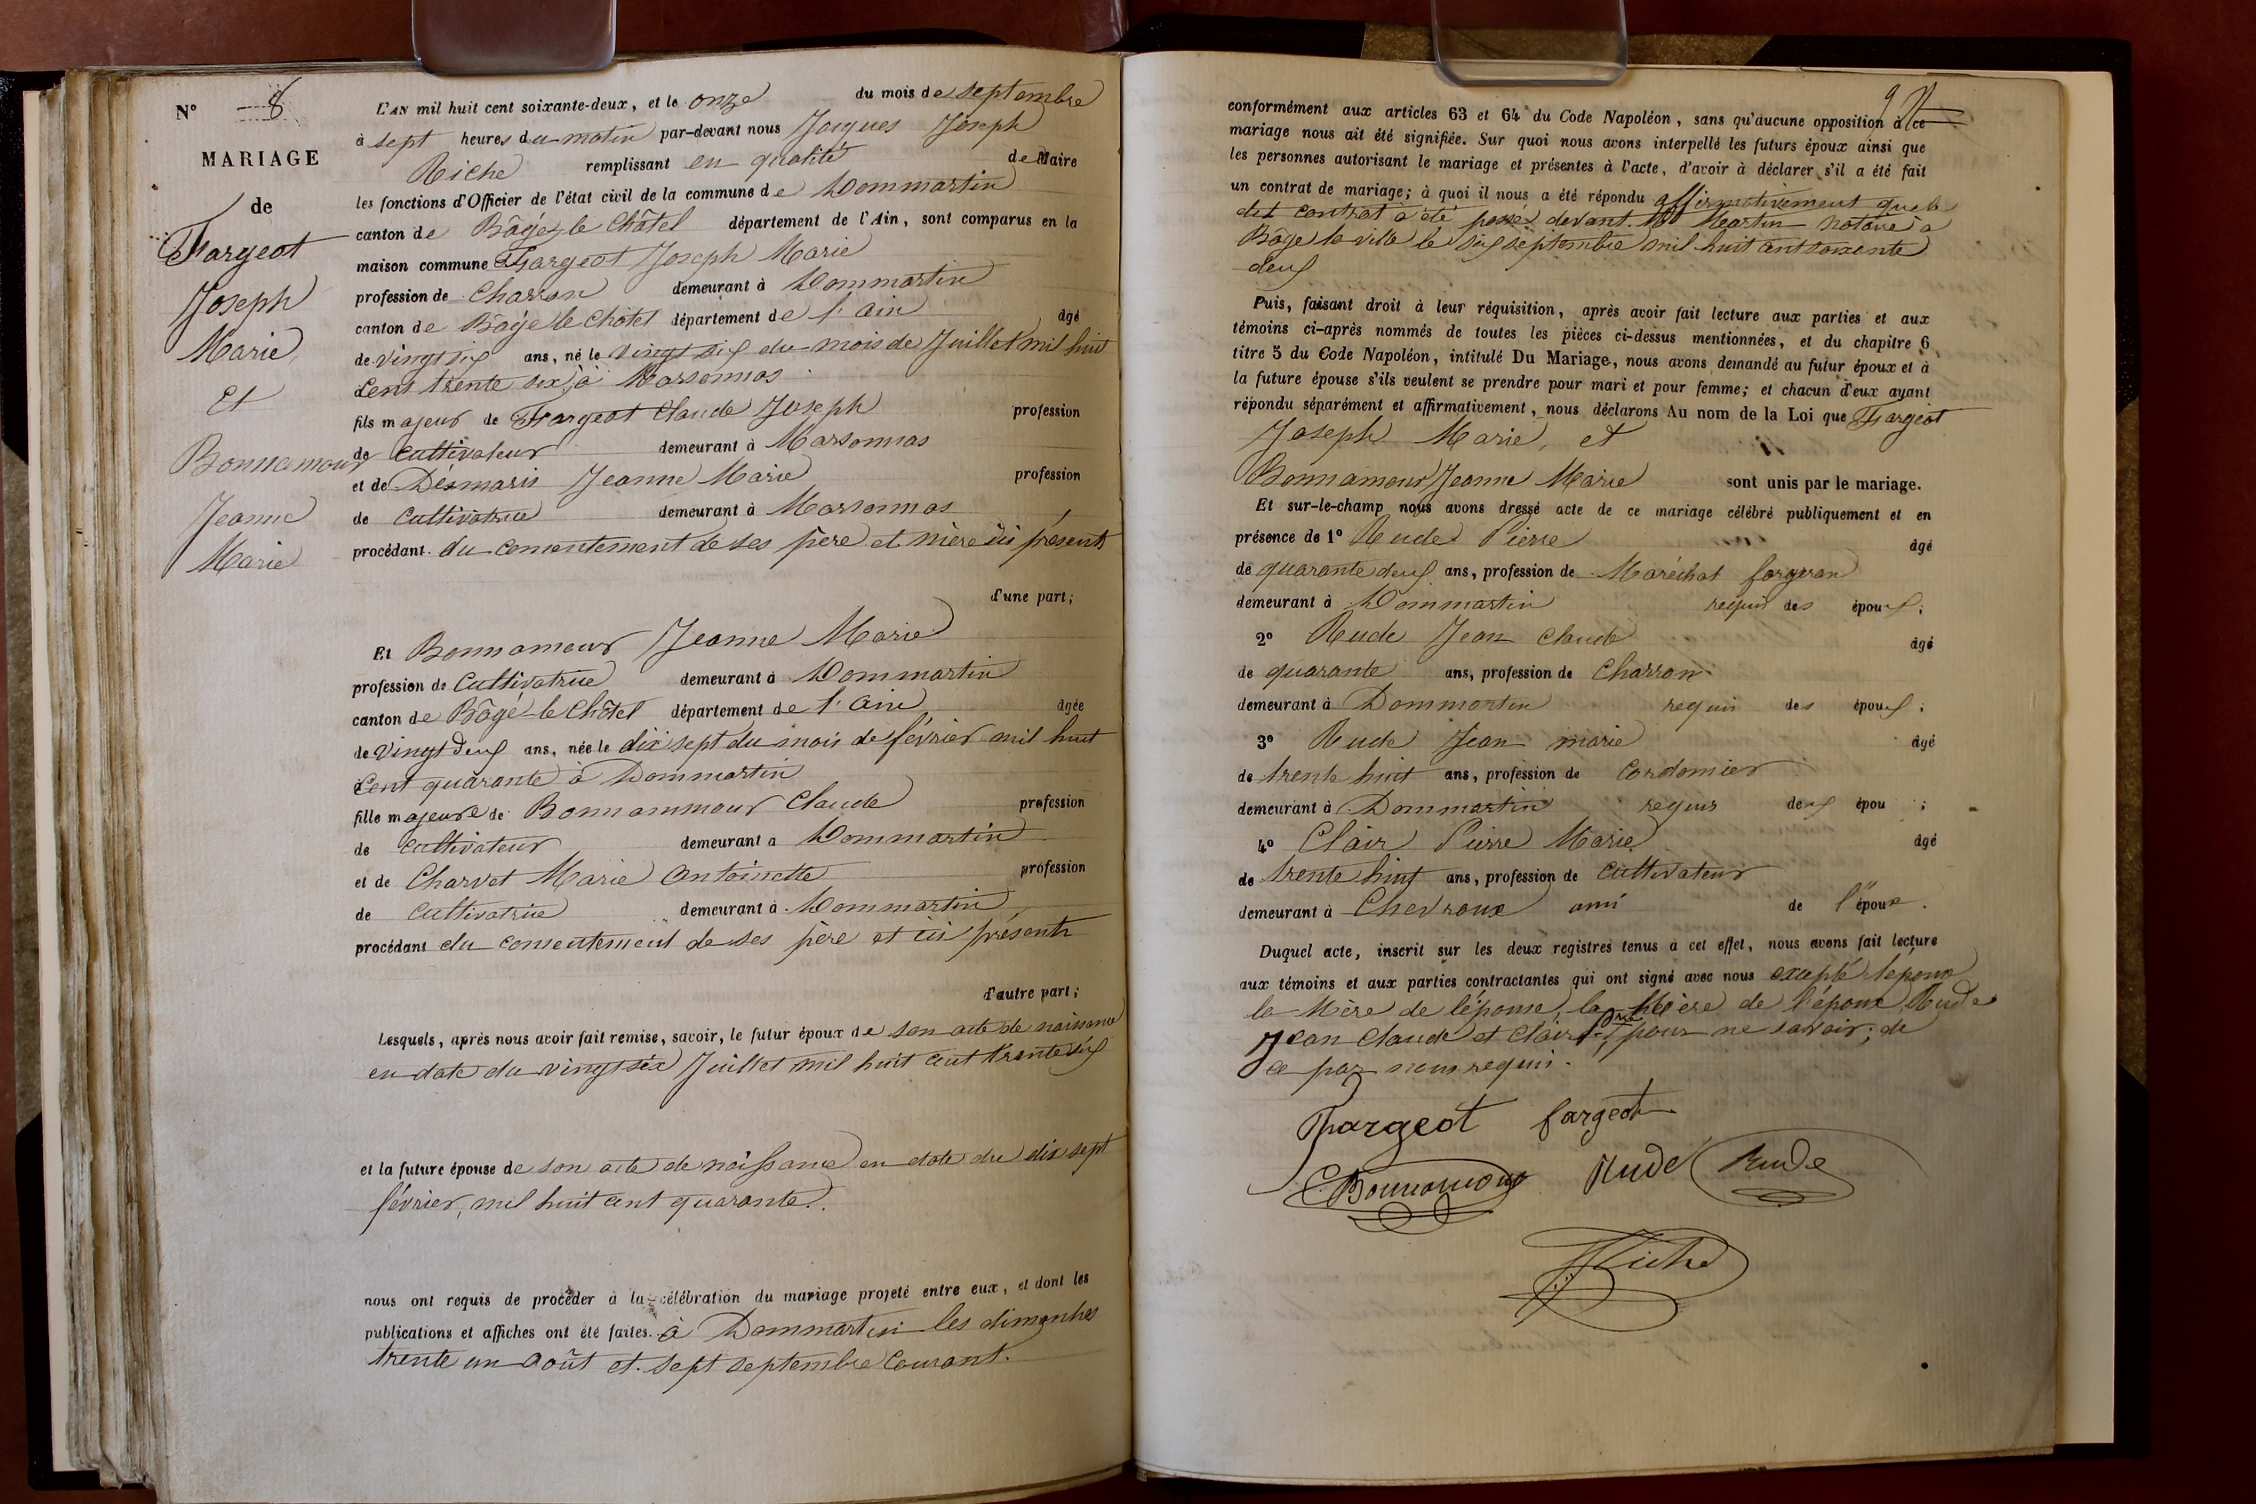 N° 8
MARIAGE
de
Fargeot
Joseph
Marie
et
Bonnamour
Jeanne
Marie
L'AN mil huit cent soixante-deux, et le onze du mois de septembre
à sept heures du matin par-devant nous Jacques Joseph
Riche remplissant en qualité de Maire
les fonctions d'Officier de l'état civil de la commune de Dommartin
canton de Bâgé-le-Châtel département de l'Ain, sont comparus en la
maison commune Fargeot Joseph Marie
profession de Charron demeurant à Dommartin
canton de Bâgé le Châtel département de l'ain âgé
de vingt six ans, né le vingt six du mois de Juillet mil huit
cent trente six, à Marsonnas
fils majeur de Fargeot Claude Joseph profession
de cultivateur demeurant à Marsonnas
et de Désmaris Jeanne Marie profession
de cultivatrice demeurant à Marsonnas
procédant du consentement de ses père et mère ici présents
d'une part;
Et Bonnamour Jeanne Marie
profession de Cultivatrice demeurant à Dommartin
canton de Bâgé-le-Châtel département de l'ain âgée
de vingt deux ans, née le dix sept du mois de février mil huit
cent quarante à Dommartin
fille majeure de Bonnammour Claude profession
de cultivateur demeurant a Dommartin
et de Charvet Marie Antoinette profession
de cultivatrice demeurant à Dommartin
procédant du consentement de ses père et ici présents
d'autre part;
Lesquels, après nous avoir fait remise, savoir, le futur époux de son acte de naissance
en date du vingt six Juillet mil huit cent trente six
et la future épouse de son acte de naissance en date du dix sept
février, mil huit cent quarante.
nous ont requis de procéder à la célébration du mariage projeté entre eux, et dont les
publications et affiches ont été faites à Dommartin les dimanches
trente un août et sept septembre courant.
conformément aux articles 63 et 64 du Code Napoléon, sans qu'aucune opposition à ce
mariage nous ait été signifiée. Sur quoi nous avons interpellé les futurs époux ainsi que
les personnes autorisant le mariage et présentes à l'acte, d'avoir à déclarer s'il a été fait
un contrat de mariage; à quoi il nous a été répondu affirmativement que le
dit contrat a été passé devant Me Martin notaire à
Bâgé la ville le six septembre mil huit cent soixante
deux
Puis, faisant droit à leur réquisition, après avoir fait lecture aux parties et aux
témoins ci-après nommés de toutes les pièces ci-dessus mentionnées, et du chapitre 6
titre 5 du Code Napoléon, intitulé Du Mariage, nous avons demandé au futur époux et à
la future épouse s'ils veulent se prendre pour mari et pour femme; et chacun d'eux ayant
répondu séparément et affirmativement, nous déclarons Au nom de la Loi que Fargeot
Joseph Marie, et
Bonnamour Jeanne Marie sont unis par le mariage.
Et sur-le-champ nous avons dressé acte de ce mariage célébré publiquement et en
présence de 1° Rude Pierre âgé
de quarante deux ans, profession de Maréchal forgeron
demeurant à Dommartin requis des époux;
2° Rude Jean Claude âgé
de quarante ans, profession de Charron
demeurant à Dommartin requis des époux;
3° Rude Jean marie âgé
de trente huit ans, profession de Cordonnier
demeurant à Dommartin requis deux épou;
4° Clair Pierre Marie âgé
de trente huit ans, profession de cultivateur
demeurant à Chevroux ami de l'époux.
Duquel acte, inscrit sur les deux registres tenus à cet effet, nous avons fait lecture
aux témoins et aux parties contractantes qui ont signé avec nous excepté l'épouse
la Mère de l'épouse, la Mère de l'époux, Rude
Jean Claude et Clair pour ne savoir; de
ce par nous requis.
Fargeot fargeot
C. Bonnamour Rude Rude
Riche